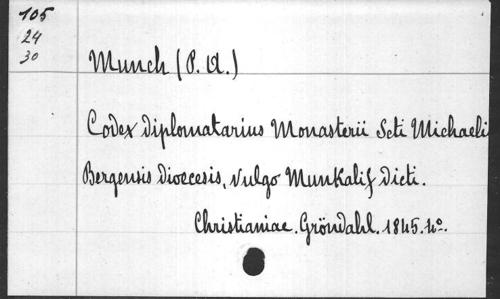 105
24
30
Munch (P. A.)
Codex diplomatarius Monasterii Scti Michaeli
Bergensis dioecesis, vulgo Munkalif dicti.
Christianiae. Gröndahl. 1845. 4o.